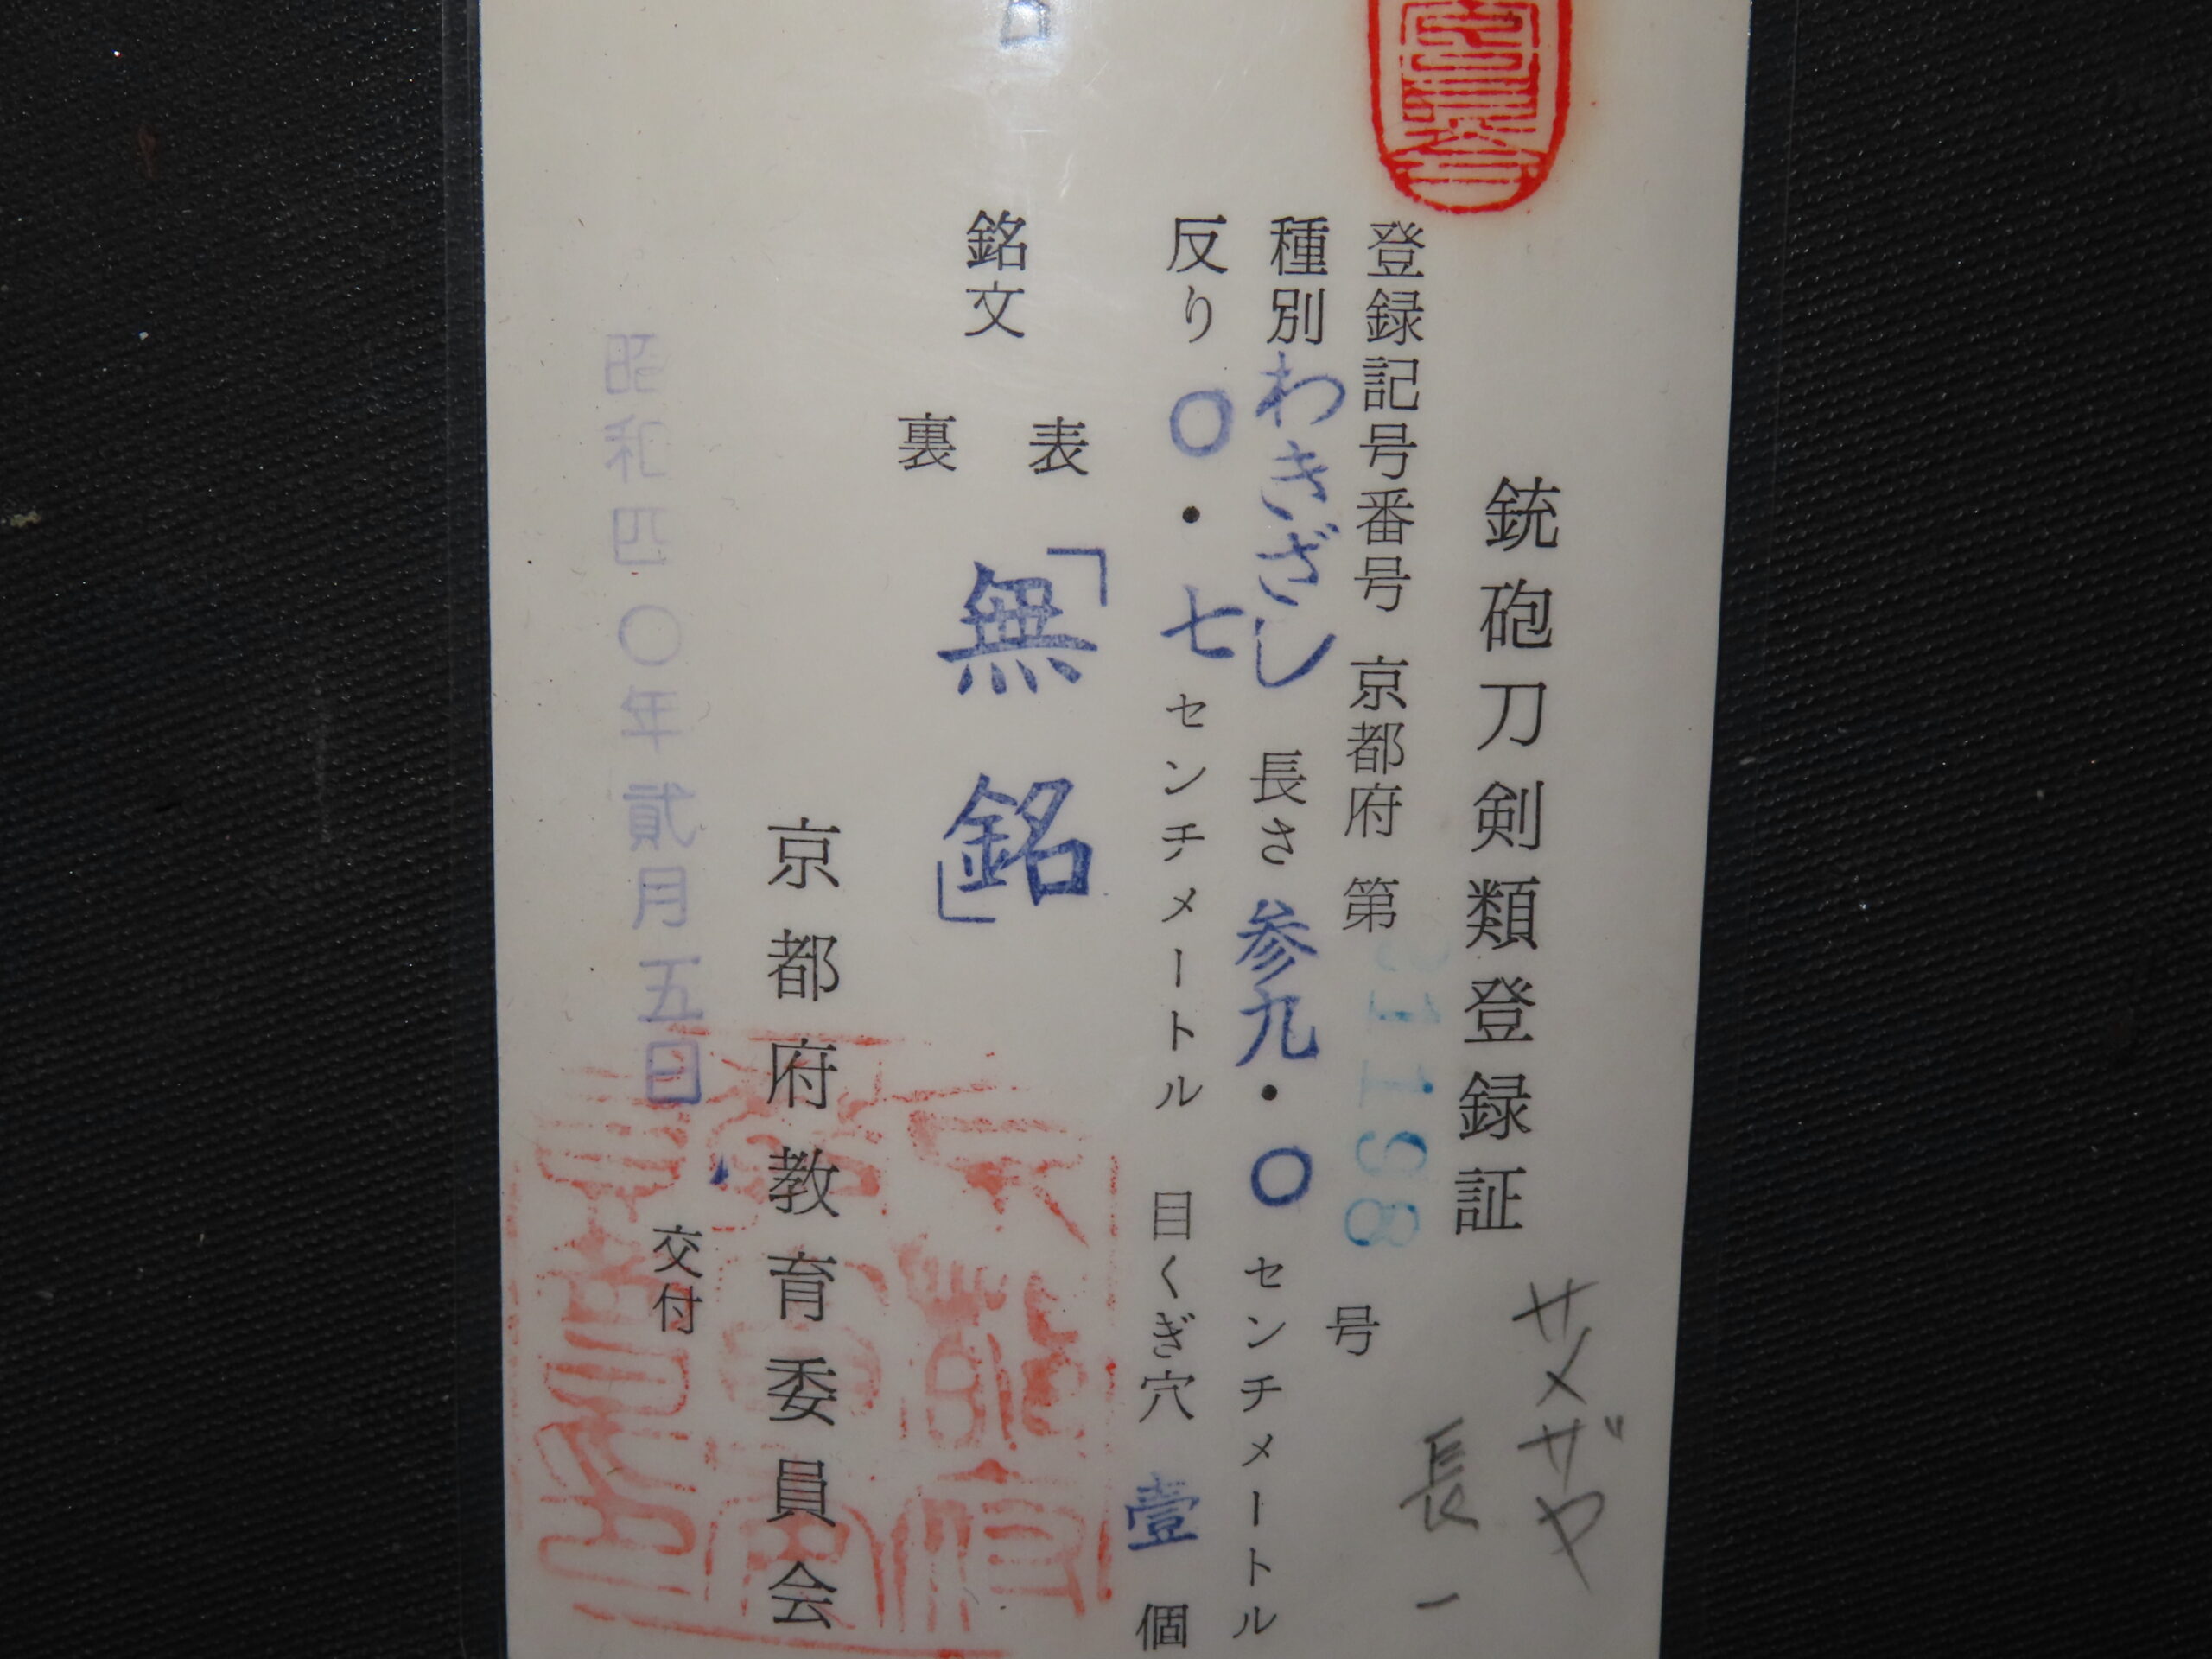 銃砲刀剣類登録証
サメザヤ
長一
登録記号番号 京都府 第31198号
種別 わきざし 長さ 参九・〇 センチメートル
反り 〇・七 センチメートル 目くぎ穴 壹 個
銘文
表 「無銘」
裏
京都府教育委員会
昭和四〇年貳月五日 交付